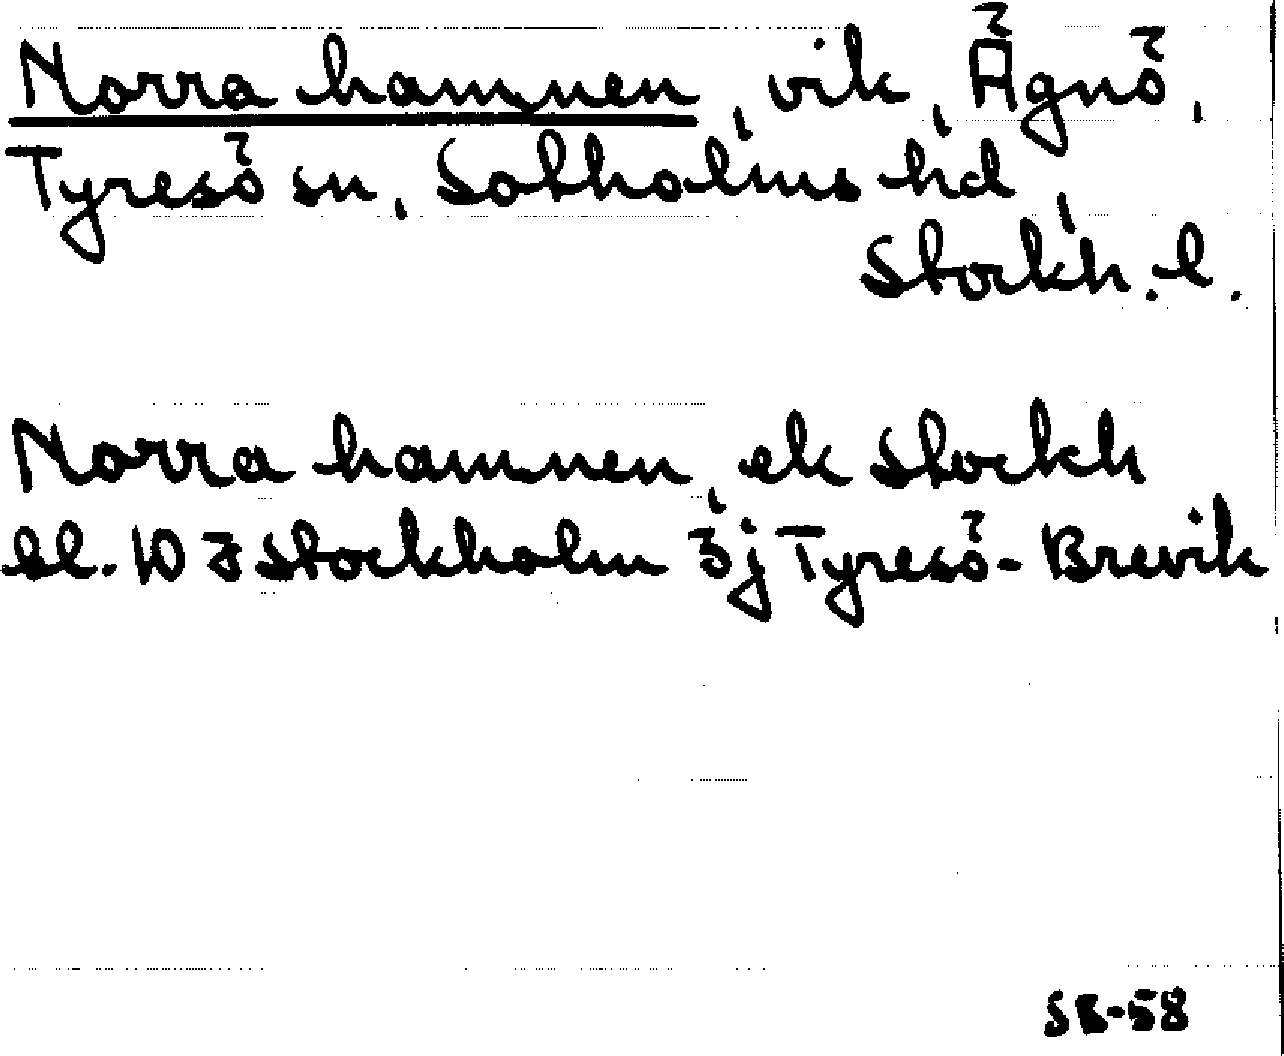 Norra hamnen, vik, Ägnö,
Tyresö sn, Sotholms hd,
Stockh. l.
Norra hamnen, ek Stockh
bl. 10 I Stockholm 3j Tyresö-Brevik